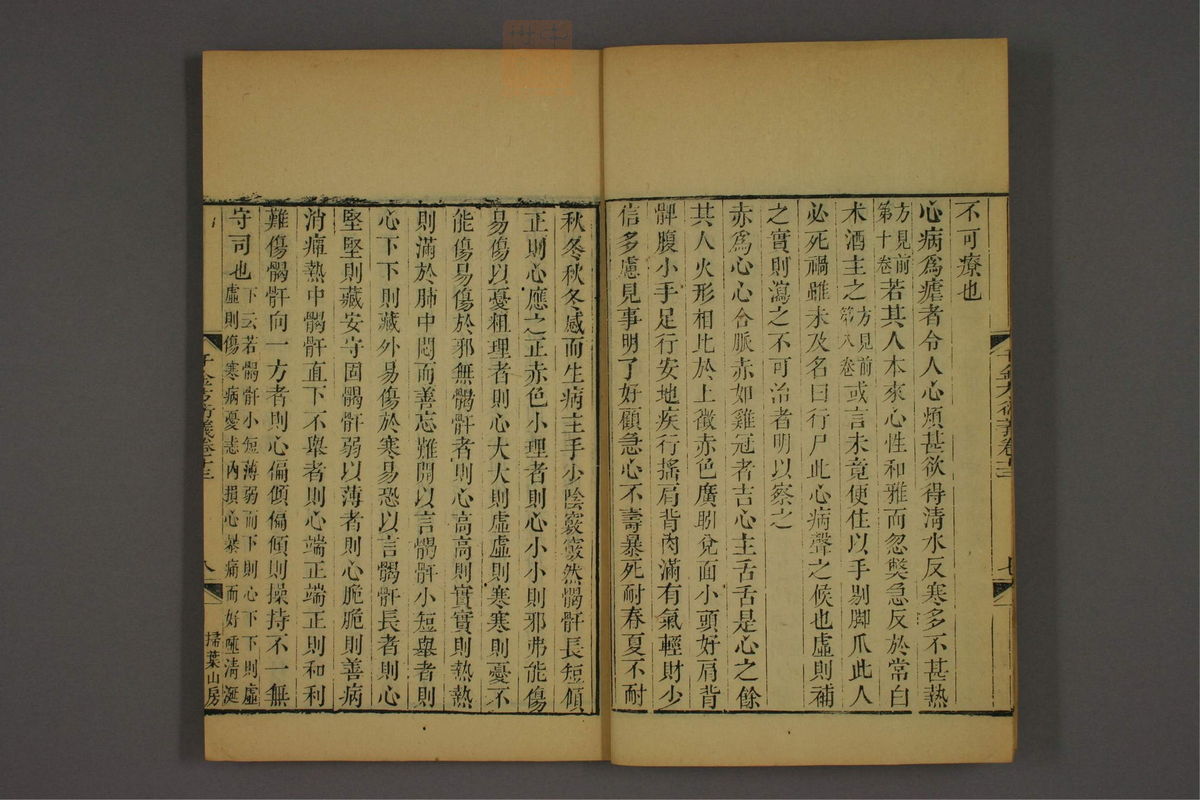 不可療也
心病為瘧者令人心煩甚欲得清水反寒多不甚熱
方見前第十卷若其人本來心性和雅而忽弊急反於常白
朮酒主之方見前第八卷或言未竟便住以手剔脚爪此人
必死禍雖未及名曰行尸此心病聲之候也虛則補
之實則瀉之不可治者明以察之
赤為心心合脈赤如雞冠者吉心主舌舌是心之餘
其人火形相比於上徵赤色廣䏖兌面小頭好肩背
髀腹小手足行安地疾行搖肩背肉滿有氣輕財少
信多慮見事明了好顧急心不壽暴死耐春夏不耐
千金方衍義卷十三
七
秋冬秋冬感而生病主手少陰竅竅然𩩲骬長短傾
正則心應之正赤色小理者則心小小則邪弗能傷
易傷以憂粗理者則心大大則虛虛則寒寒則憂不
能傷易傷於邪無𩩲骬者則心高高則實實則熱熱
則滿於肺中悶而善忘難開以言𩩲骬小短舉者則
心下下則藏外易傷於寒易恐以言𩩲骬長者則心
堅堅則藏安守固𩩲骬弱以薄者則心脆脆則善病
消癉熱中𩩲骬直下不舉者則心端正端正則和利
難傷𩩲骬向一方者則心偏傾偏傾則操持不一無
守司也下云若𩩲骬小短薄弱而下則心下下則虛虛則傷寒病憂恚內損心暴痛而好唾清涎
千金方衍義卷十三
八
掃葉山房